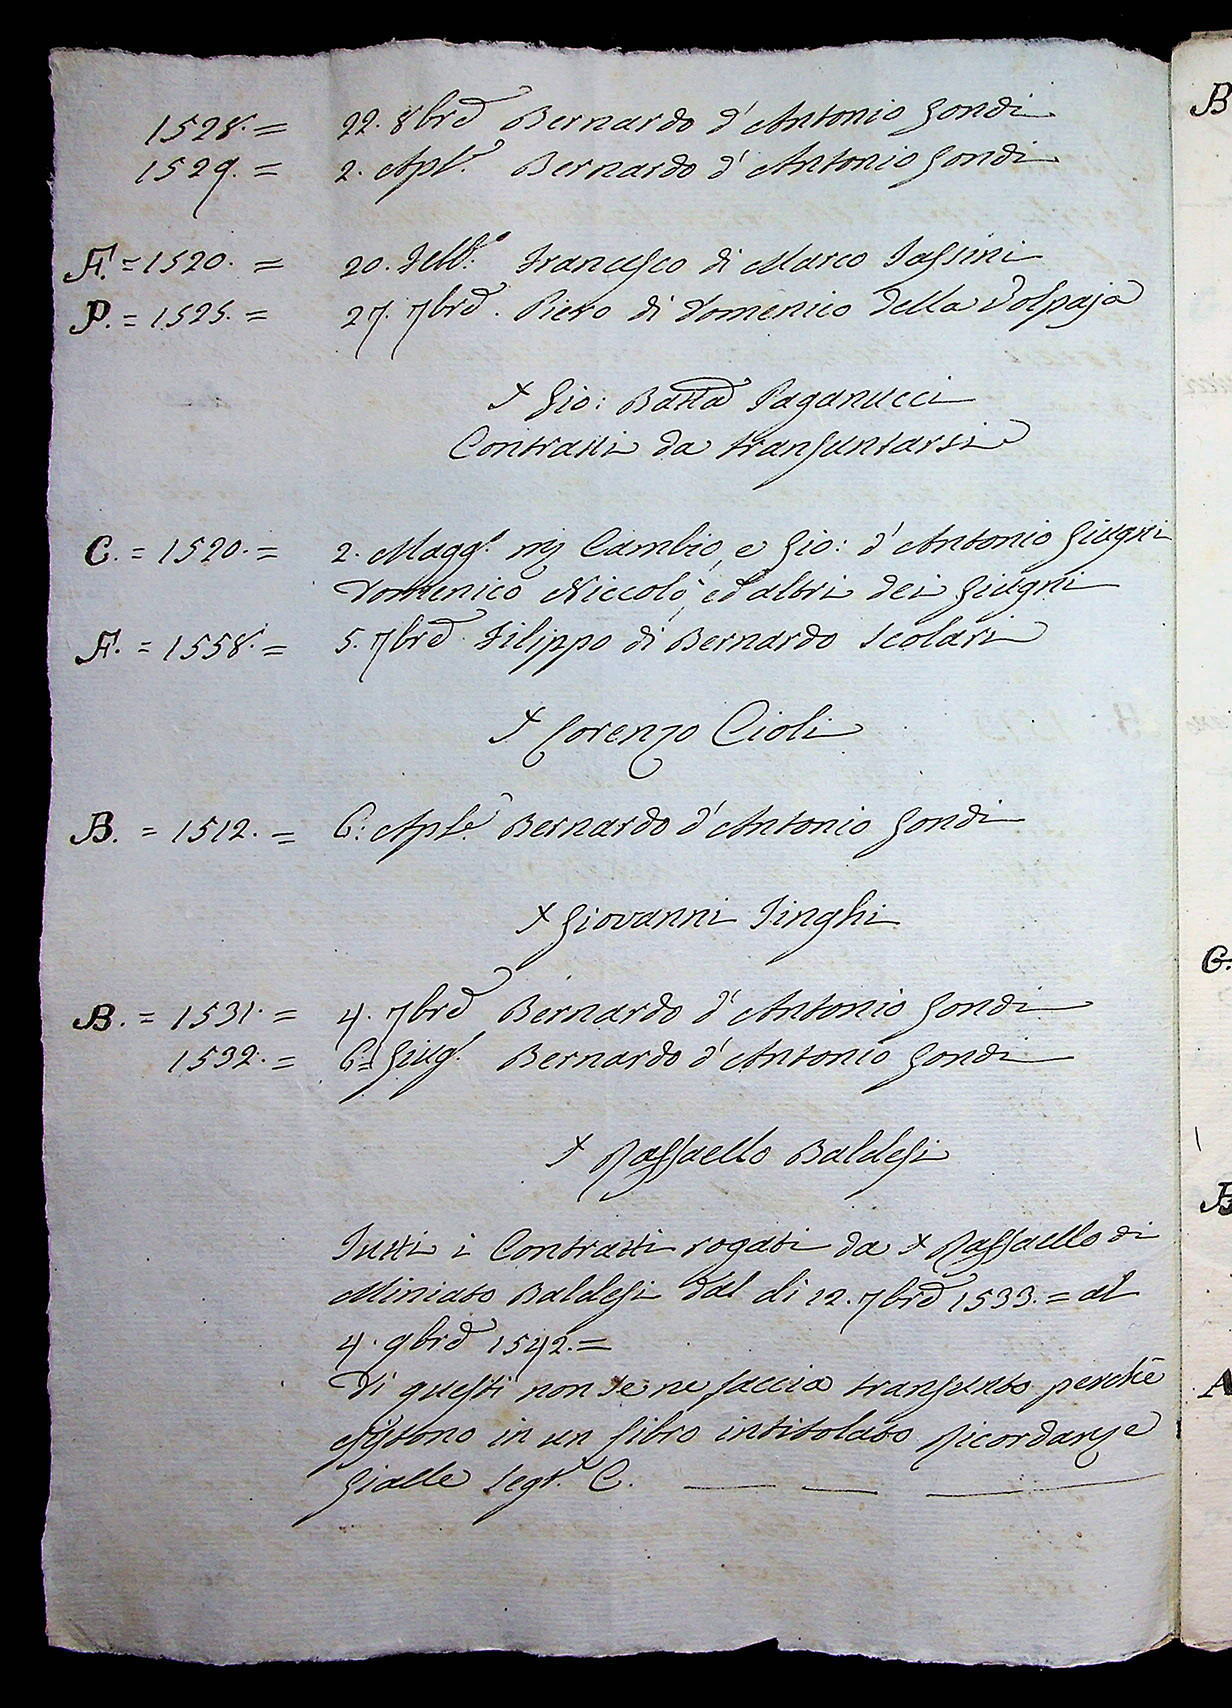 1528. = 22. 8bre Bernardo d'Antonio Gondi
1529. = 2. Aple. Bernardo d'Antonio Gondi
F. = 1520. = 20. Febb.o Francesco di Marco Sassini
P. = 1525. = 27. 7bre. Piero di Domenico della Volpaja
S Gio: Batta Paganucci
Contratti da transuntarsi
C. = 1520. = 2. Magg.o Cambio, e Gio: d'Antonio Giugni
Domenico Niccolò, ed altri dei Giugni
F. = 1558. = 5. 7bre. Filippo di Bernardo Scolari
S Lorenzo Cioli
B. = 1512. = 6: Aple. Bernardo d'Antonio Gondi
S Giovanni Singhi
B. = 1531. = 4. 7bre Bernardo d'Antonio Gondi
1532. = 6= Giug.o Bernardo d'Antonio Gondi
S Raffaello Baldesi
Tutti i Contratti rogati da S Raffaello di
Miniato Baldesi dal dì 12. 7bre 1533. = al
4. 9bre 1542. =
Di questi non se ne faccia transunto perchè
esistono in un Libro intitolato Ricordanze
Gialle Segt. C.
B
G.
B
A